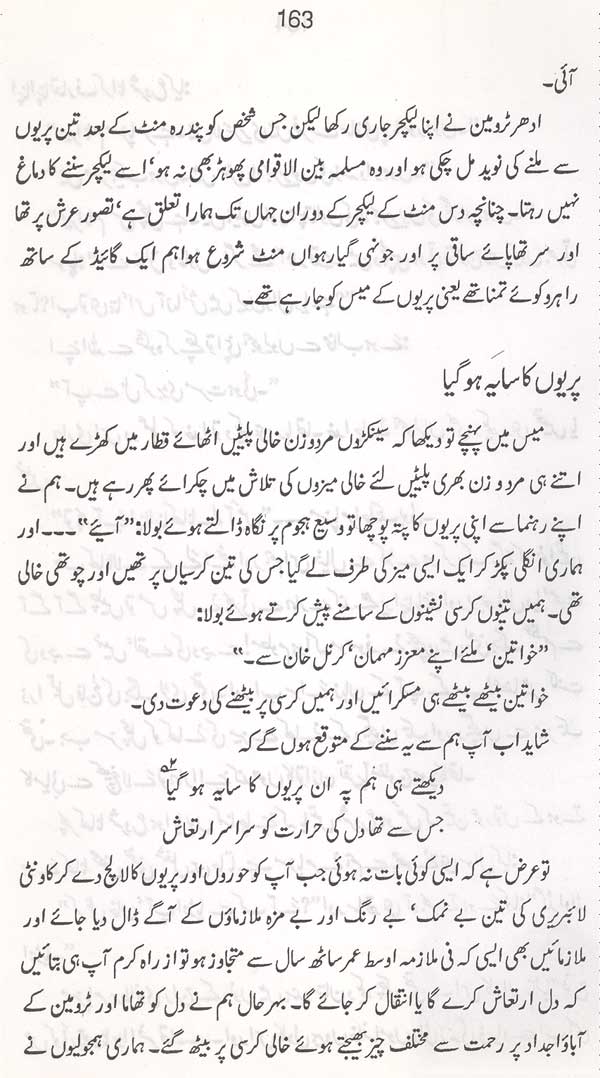 163
آئی۔
ادھر ٹرومین نے اپنا لیکچر جاری رکھا لیکن جس شخص کو پندرہ منٹ کے بعد تین پریوں
سے ملنے کی نوید مل چکی ہو اور وہ مسلمہ بین الاقوامی پھوہڑ بھی نہ ہو‘ اسے لیکچر سننے کا دماغ
نہیں رہتا۔ چنانچہ دس منٹ کے لیکچر کے دوران جہاں تک ہمارا تعلق ہے‘ تصور عرش پر تھا
اور سر تھا پائے ساقی پر اور جونہی گیارہواں منٹ شروع ہوا ہم ایک گائیڈ کے ساتھ
راہرو کوئے تمنا تھے یعنی پریوں کے میس کو جا رہے تھے۔
پریوں کا سایہ ہو گیا
میس میں پہنچے تو دیکھا کہ سینکڑوں مرد و زن خالی پلیٹیں اٹھائے قطار میں کھڑے ہیں اور
اتنے ہی مرد و زن بھری پلیٹیں لئے خالی میزوں کی تلاش میں چکرائے پھر رہے ہیں۔ ہم نے
اپنے رہنما سے اپنی پریوں کا پتہ پوچھا تو وسیع ہجوم پر نگاہ ڈالتے ہوئے بولا: ’’آیئے‘‘ ۔۔۔ اور
ہماری انگلی پکڑ کر ایک ایسی میز کی طرف لے گیا جس کی تین کرسیاں پر تھیں اور چوتھی خالی
تھی۔ ہمیں تینوں کرسی نشینوں کے سامنے پیش کرتے ہوئے بولا:
’’خواتین‘ ملئے اپنے معزز مہمان‘ کرنل خان سے۔‘‘
خواتین بیٹھے بیٹھے ہی مسکرائیں اور ہمیں کرسی پر بیٹھنے کی دعوت دی۔
شاید اب آپ ہم سے یہ سننے کے متوقع ہوں گے کہ
دیکھتے ہی ہم پہ ان پریوں کا سایہ ہو گیا
جس سے تھا دل کی حرارت کو سراسر ارتعاش
تو عرض ہے کہ ایسی کوئی بات نہ ہوئی جب آپ کو حوروں اور پریوں کا لالچ دے کر کاونٹی
لائبریری کی تین بے نمک‘ بے رنگ اور بے مزہ ملازماؤں کے آگے ڈال دیا جائے اور
ملازمائیں بھی ایسی کہ فی ملازمہ اوسط عمر ساٹھ سال سے متجاوز ہو تو از راہ کرم آپ ہی بتائیں
کہ دل ارتعاش کرے گا یا انتقال کر جائے گا۔ بہر حال ہم نے دل کو تھاما اور ٹرومین کے
آباؤ اجداد پر رحمت سے مختلف چیز بھیجتے ہوئے خالی کرسی پر بیٹھ گئے۔ ہماری ہمجولیوں نے